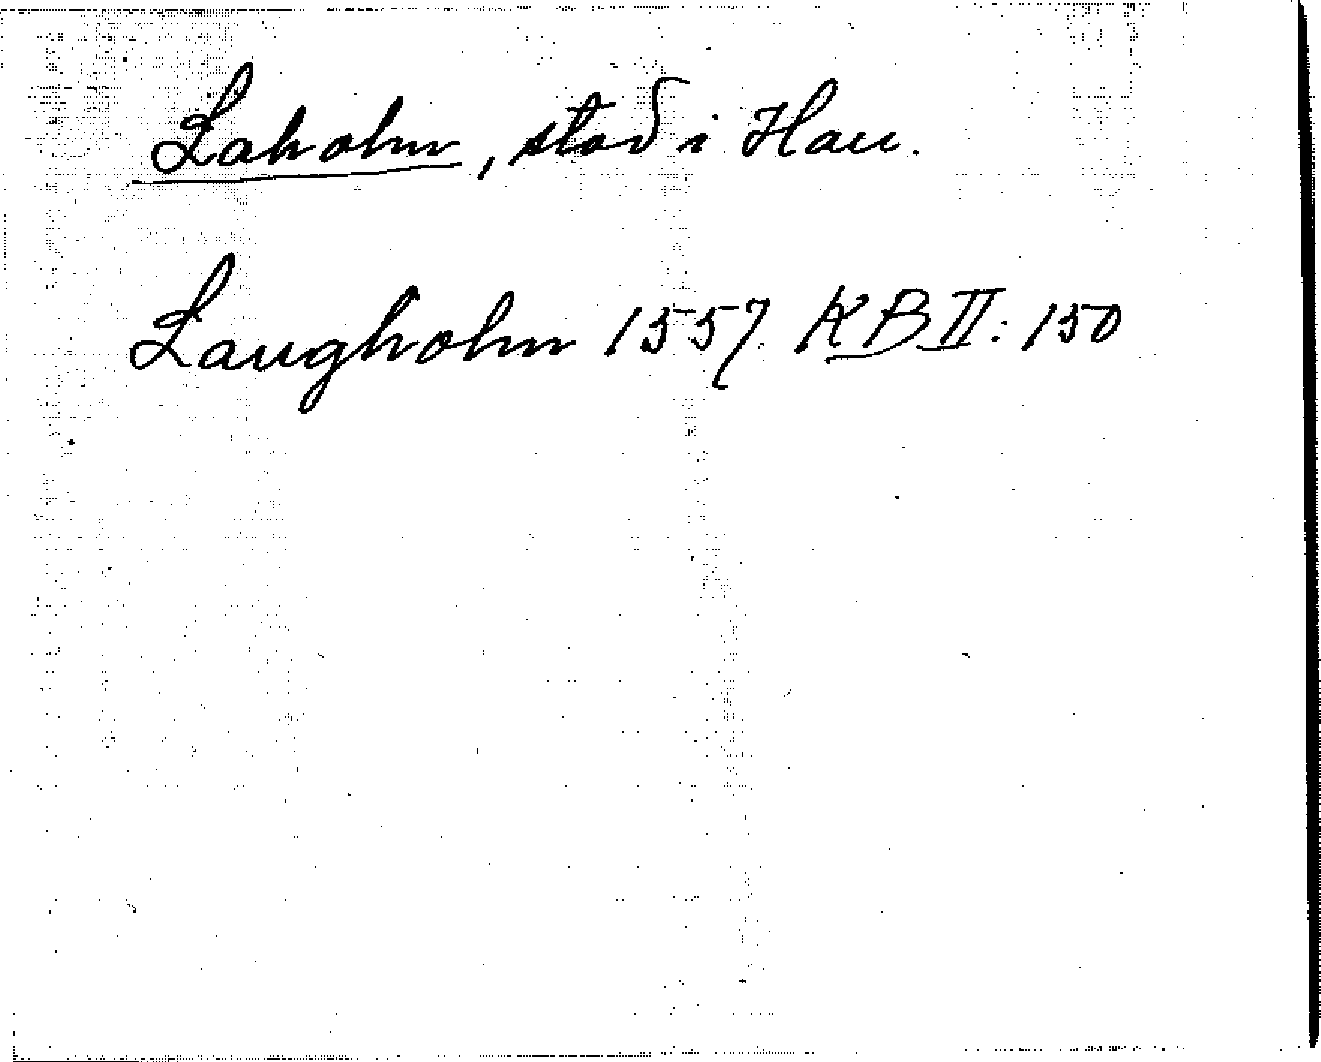 Laholm, stad i Hall.
Laugholm 1557. KB II: 150